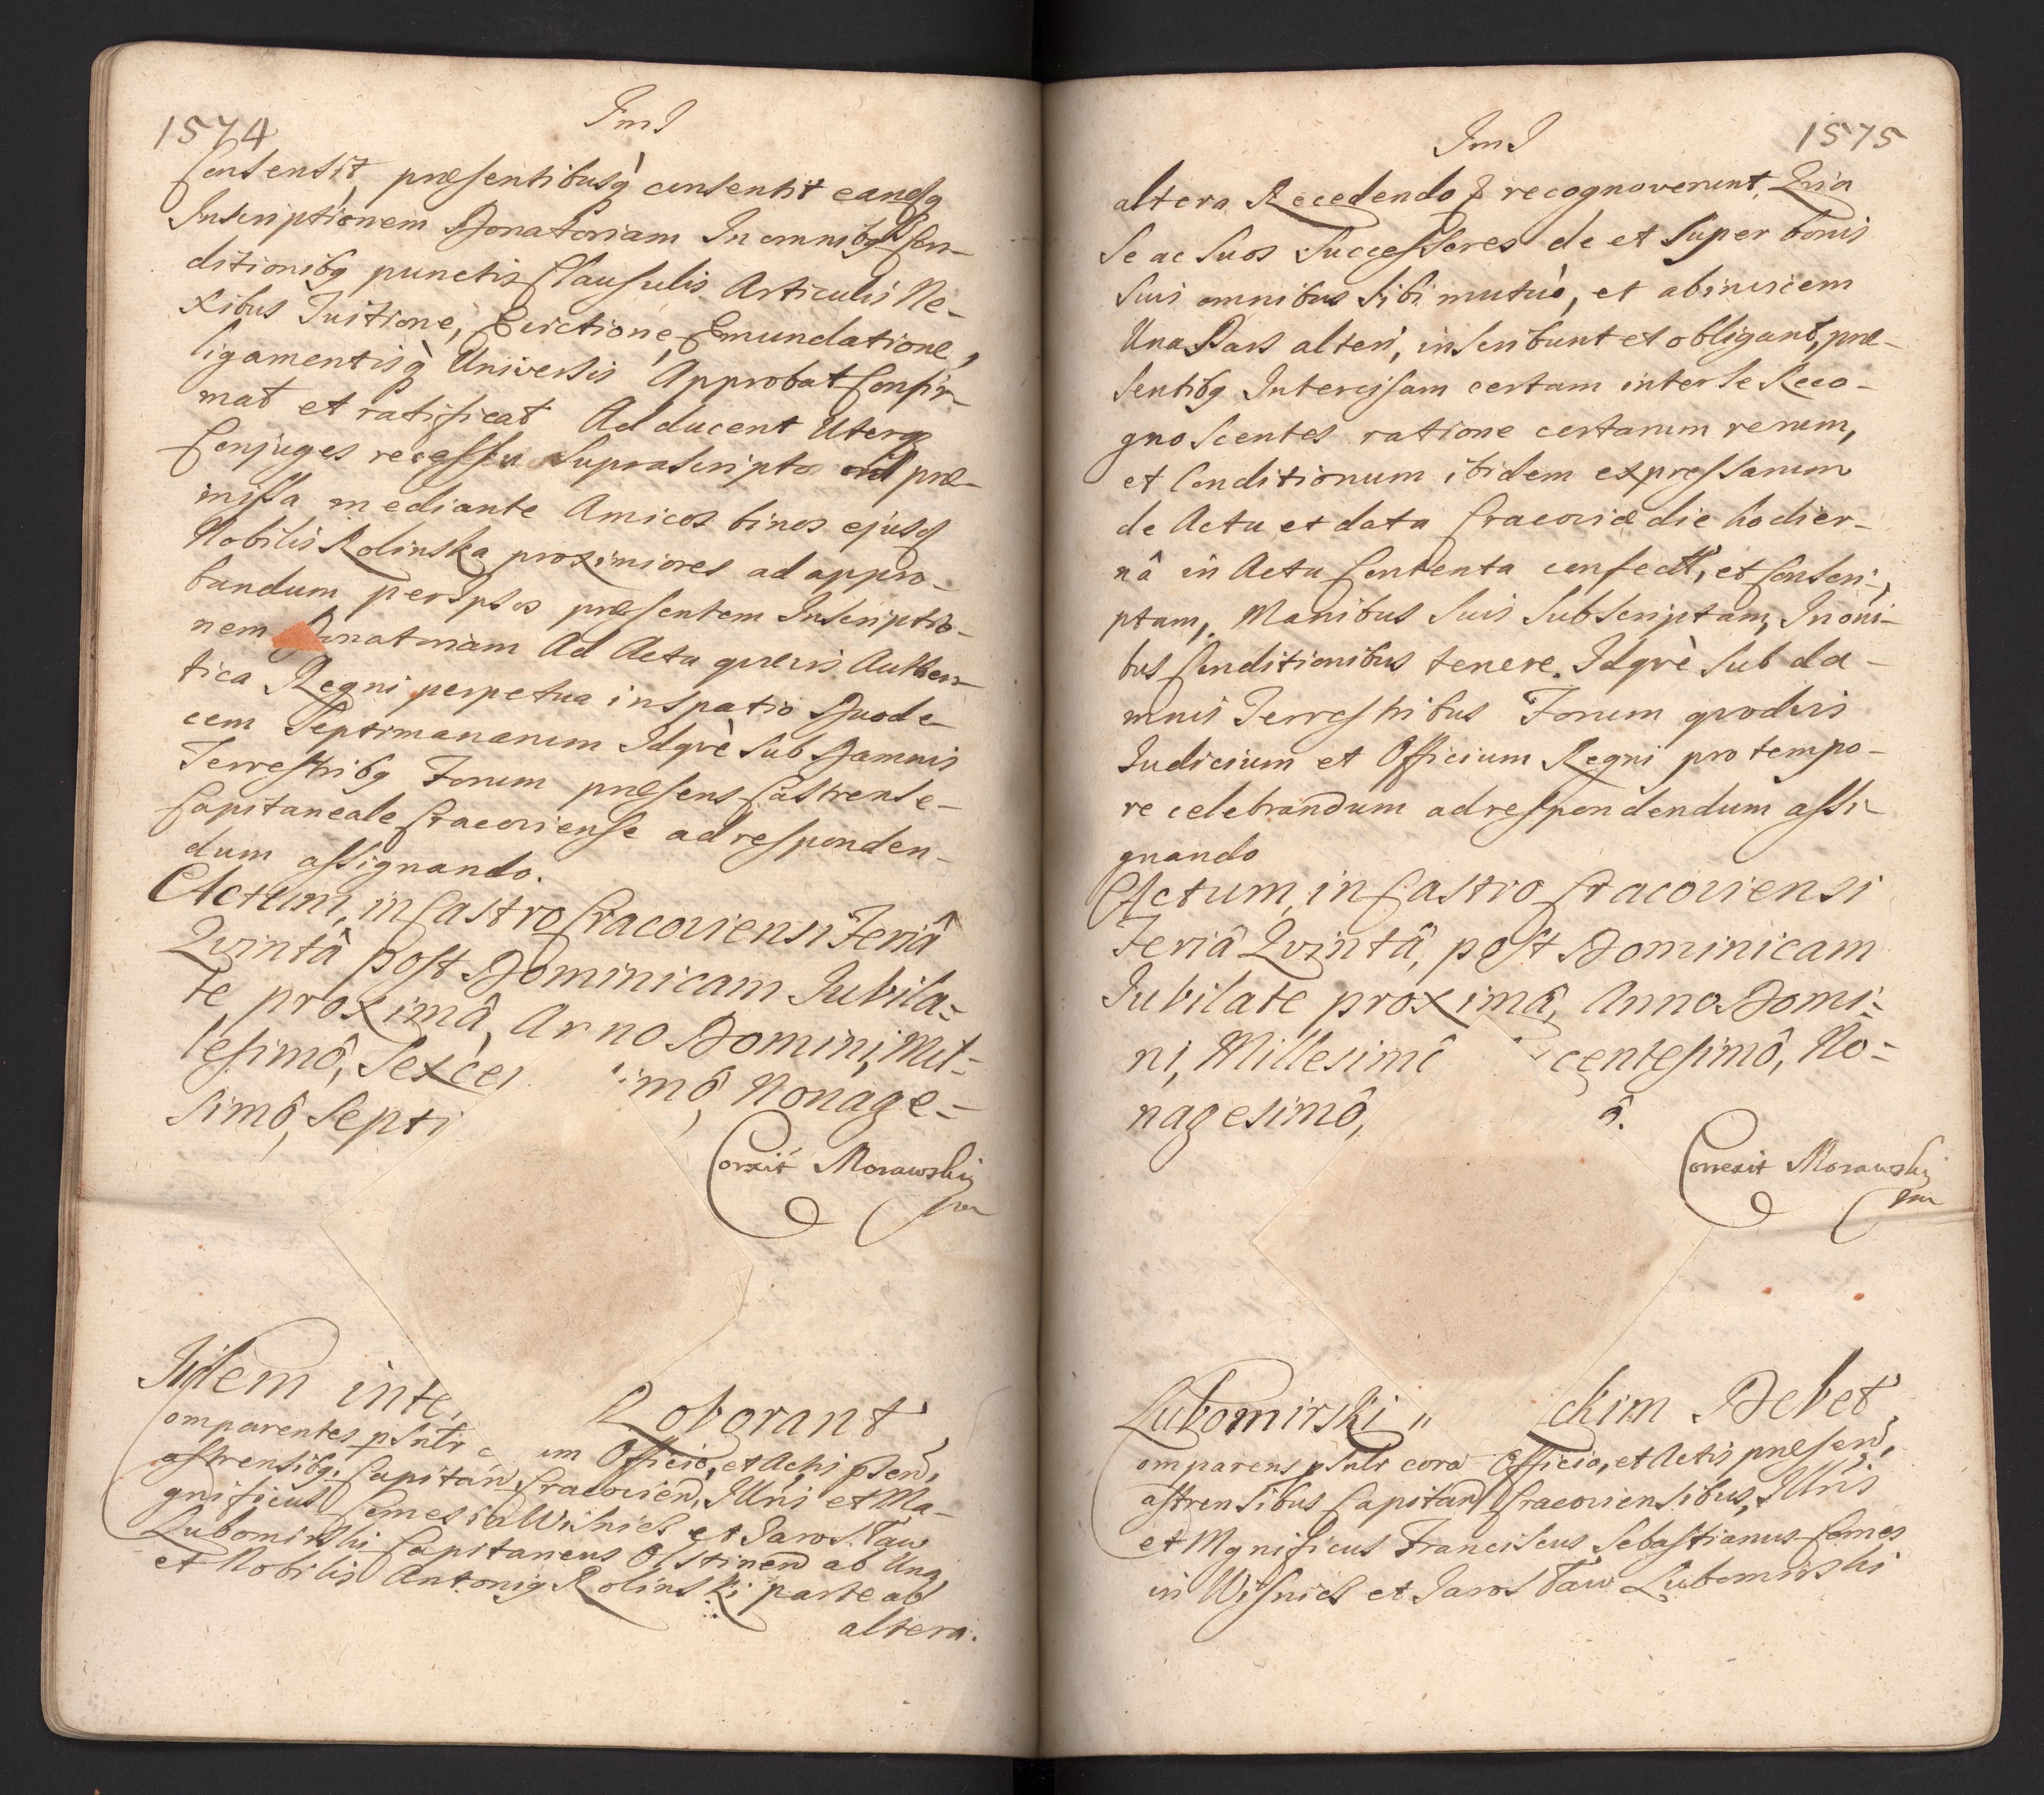 1574
ImI
Consensit, præsentibusq̀ consentit eandq
Inscriptionem Donatoriam In omnibq Con-
ditionibq punctis Clausulis Articulis Ne-
xibus Tuitione, Evictione, Emundatione,
ligamentisq̀ Universis Approbat Confir-
mat et ratificat Adducent Uterq
Conjuges recessu Suprascripto ad præ-
missa mediante Amicos binos ejusq
Nobilis Rolinska proximiores ad appro-
bandum per Ipsos præsentem Inscriptio-
nem Donatoriam Ad Acta quævis Authen-
tica Regni perpetua in spatio Duode-
cem Septimanarum Idqvè Sub Damnis
Terrestribq Forum præsens Castrense-
Capitaneale Cracoviense ad responden-
dum assignando.
Actum, in Castro Cracoviensi Feriâ
Qvintâ post Dominicam Iubila=
te proximâ, Anno Domini, Mil=
lesimô, Sexcen imô, Nonage=
simô, Septi
Corexit Morawski
mp
Iidem inte Roborant,
Comparentes pSntr c im Officio, et Actis pSen,
astrensibq. Capitan, Cracovien, Illris et Ma-
gnificus Comes in Wisnicz et Jarosław
Lubomirski Capitaneus Olstinen ab Una,
et Nobilis Antoniq Rolinski parte ab
altera.
1575
ImI
altera Recedendo & recognoverunt. Qvia
Se ac Suos Successores de et Super bonis
Suis omnibus Sibi mutuò, et abinvicem
Una Pars alteri, inscribunt et obligant, præ-
sentibq Intercisam certam inter Se Reco-
gnoscentes ratione certarum rerum,
et Conditionum ibidem expressarum
de Actu et data Cracoviæ die hodier-
nâ in Actu Contenta confectt, et Conscri-
ptam, Manibus Suis Subscriptam, In omi-
bus Conditionibus tenere. Idqvè Sub da-
mnis Terrestribus Forum qvodvis
Iudicium et Officium Regni pro tempo-
re celebrandum ad respondendum assi-
gnando
Actum, in Castro Cracoviensi
Feriâ Qvintâ, post Dominicam
Iubilate proximâ, Anno Domi=
ni, Millesimô centesimô, No=
nagesimô, ô.
Correxit Morawski
mp
Lubomirski ckim Debet,
Comparens pSntr cora Officio, et Actis præsen,
astrensibus Capitan Cracoviensibus, Illris
et Mgnificus Franciscus Sebastianus Comes
in Wisnicz et Jarosław Lubomirski